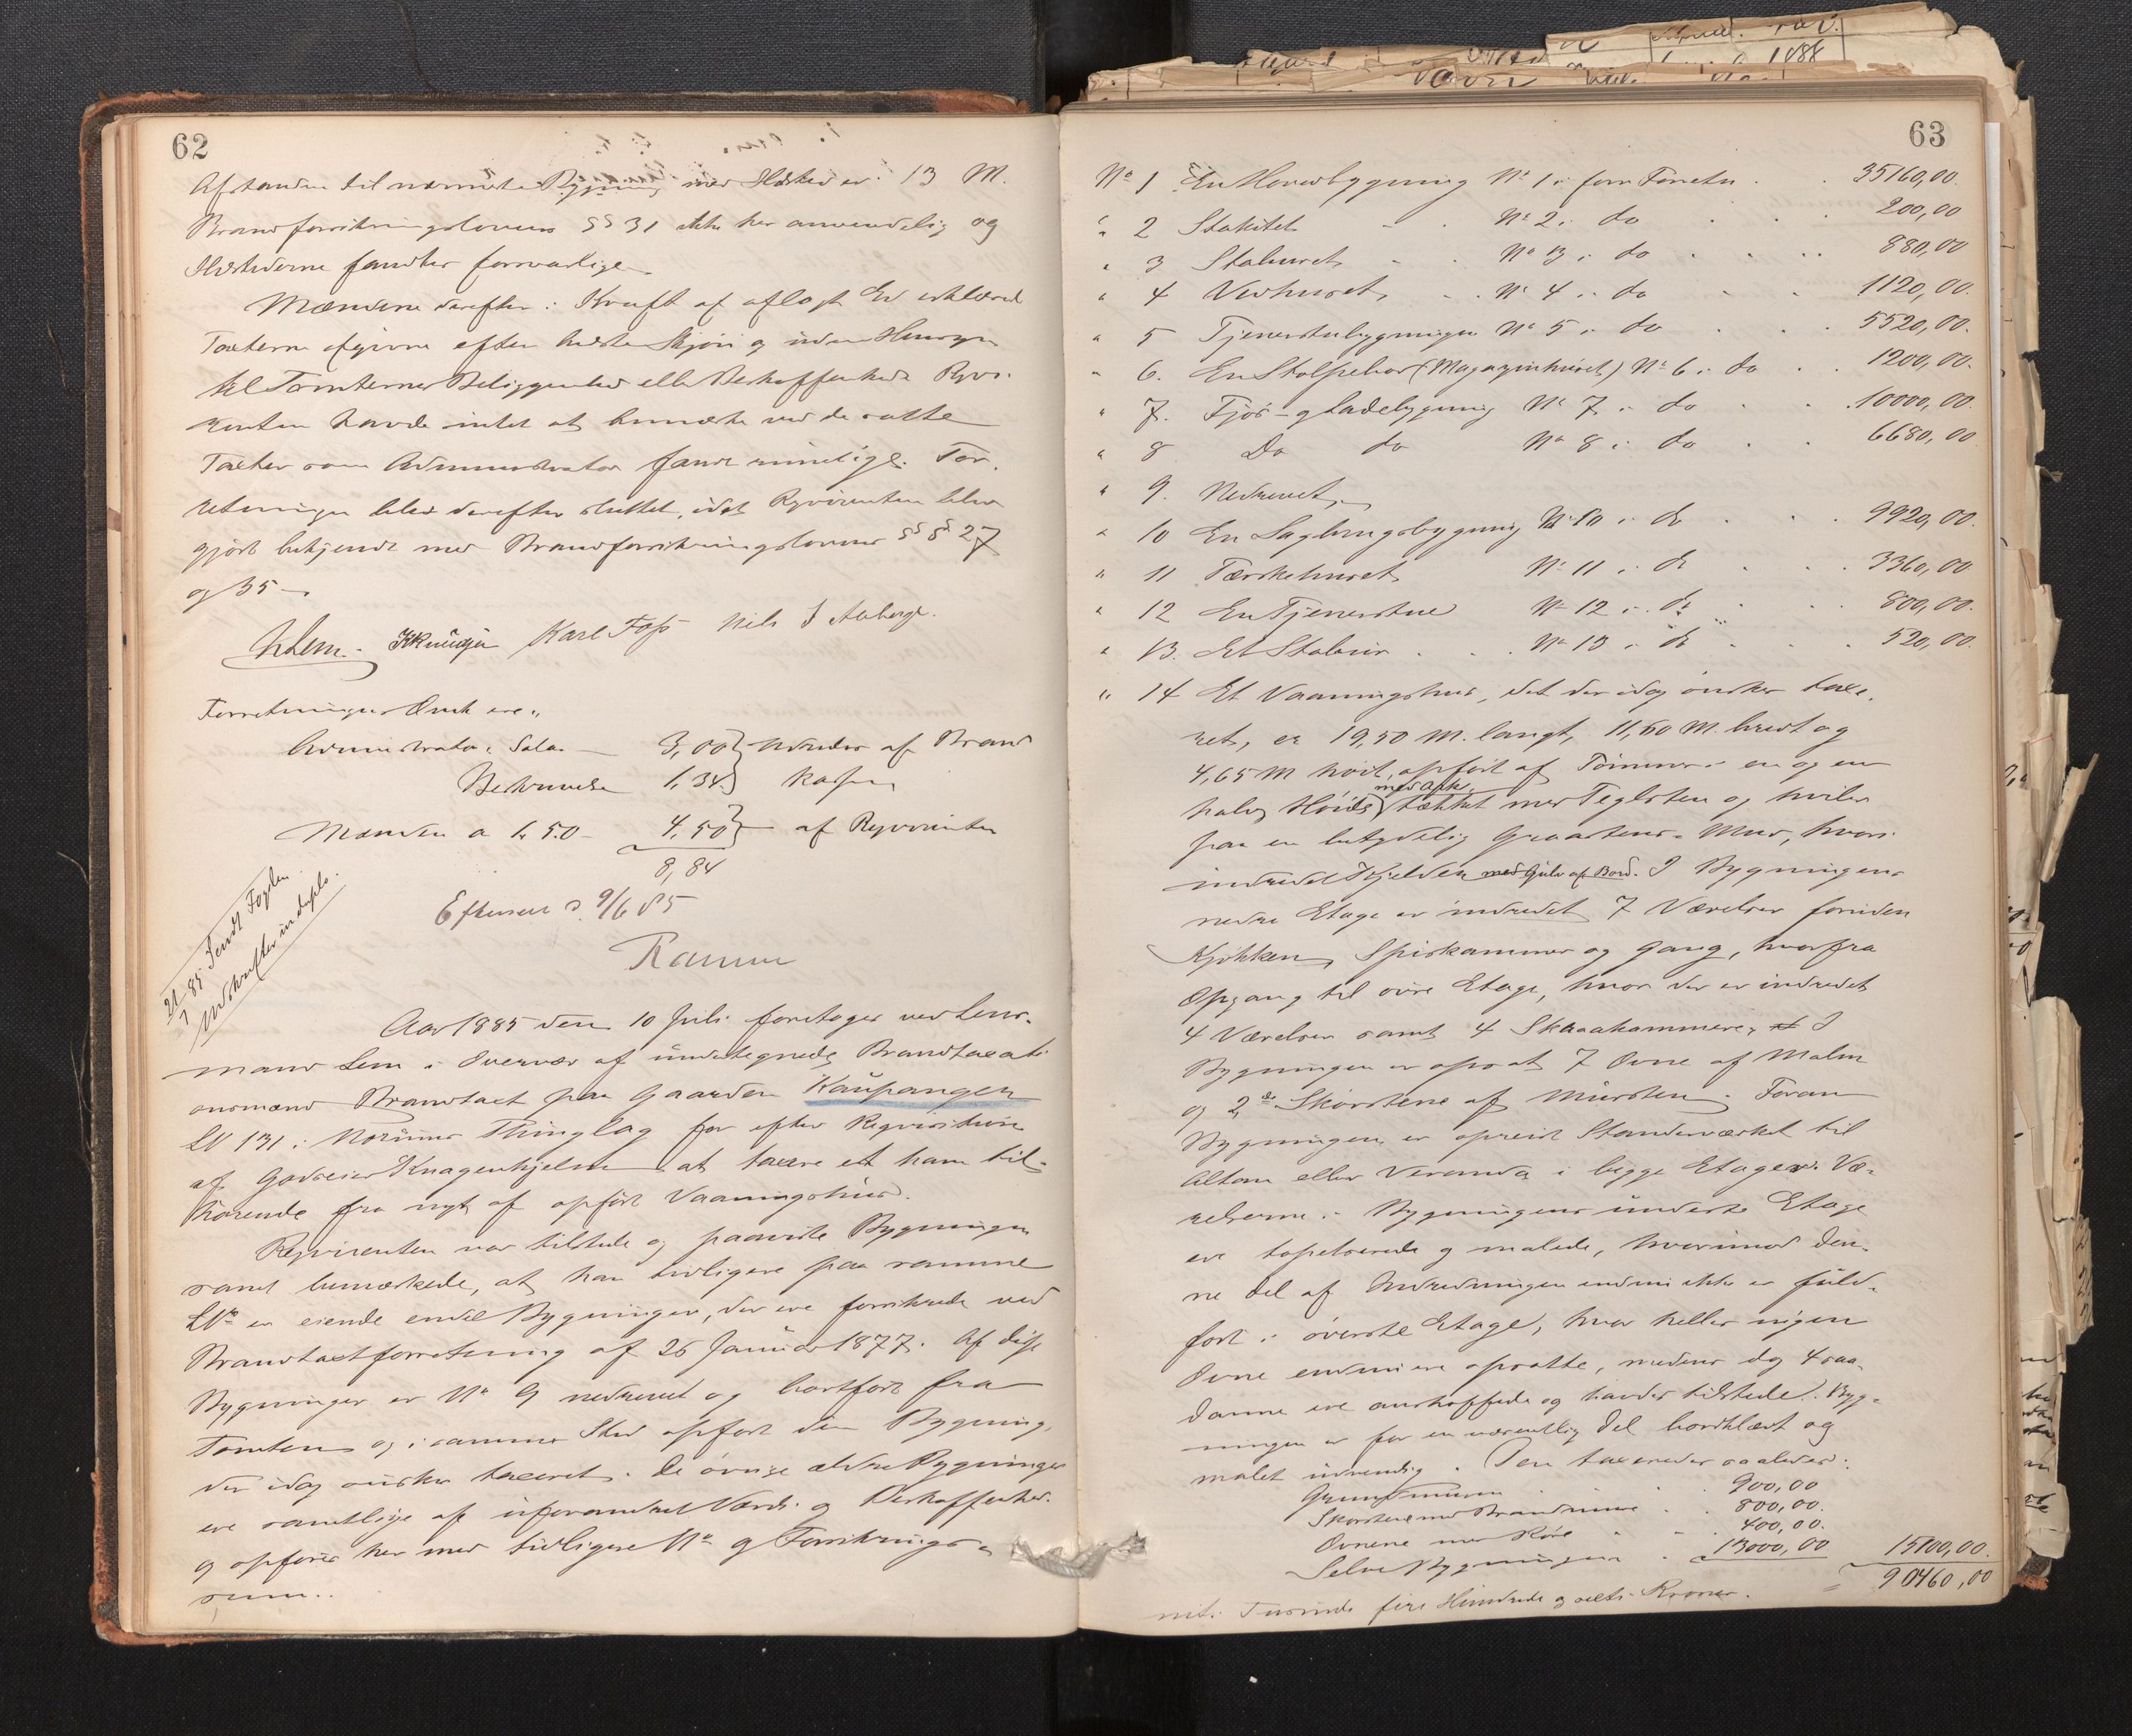 62
Afstanden til nærmeste Bygning med Ildsted er 13 M.
Brandforsikringslovens §§ 31 ikke her anvendelig og
Ildstederne fandtes forsvarlige.
Mændene derefter i Kraft af aflagt Ed erklæred
Taxterne afgivne efter bedste Skjøn og uden Hensyn
til Tomternes Beliggenhed eller Beskaffenhed. Rqvi-
renten havde intet at bemærke ved de satte
Taxter som Administrator fandt rimelige. For-
retningen blev derefter sluttet, idet Rqvirenten blev
gjort bekjendt med Brandforsikringslovens §§ 27
og 35
Lem. Karl Foss Nils J Aaberge.
Forretningens Omk ere:
Administrator i Salær 3,00 udredes af Brand
Beskrivelse 1,34 kassen
Mændene a 1,50 4,50 af Rqvirenten
8,84
Efterseet d. 9/6 85
Ramm
21/7 85 Sendt Fogden
Udskrifter in duplo.
Aar 1885 den 10 Juli foretoges ved Lens-
mand Lem i Overvær af undertegnede Brandtaxati-
onsmænd Brandtaxt paa Gaarden Kaupangen
LN 131 i Norums Thinglag for efter Reqvisition
af Godseier Knagenhjelm at taxere et ham til-
hørende fra nyt af opført Vaaningshus.
Reqvirenten var tilstede og paaviste Bygningen
samt bemærkede, at han tidligere paa samme
LNo er eiende endel Bygninger, der ere forsikrede ved
Brandtaxtforretning af 26 Januar 1877. Af disse
Bygninger er No 9 nedrevet og bortført fra
Tomten og i sammes Sted opført den Bygning,
der idag ønskes taxeret. De øvrige ældre Bygninger
ere samtlige af uforandret Værdi og Beskaffenhed
og opføres her med tidligere No og Forsikrings-
sum:
63
No 1 En Hovedbygning No 1 i forr Forretn 35160,00.
" 2 Stakitet No 2 i do 200,00
" 3 Staburet No 3 i do 880,00
" 4 Vedhuset No 4 i do 1120,00.
" 5 Tjenestebygningen No 5 i do 5520,00.
" 6. En Stolpebod (Magazinhuset) No 6 i do 1200,00.
" 7. Fjøs- og Ladebygning No 7 i do 10000,00.
" 8 Do do No 8 i do 6680,00
" 9. Nedrevet
" 10 En Sagbrugsbygning No 10 i do 9920,00.
" 11 Tærskehuset No 11 i do 3360,00
" 12 En Tjenerstue No 12 i do 800,00.
" 13. Et Stabur No 13 i do 520,00.
" 14 Et Vaaningshus, det der idag ønskes taxe-
ret, er 19,50 M. langt, 11,60 M. bredt og
4,65 M høit, opført af Tømmer i en og en
halv Høide med Ark, tækket med Teglsten og hviler
paa en betydelig Graastens-Mur, hvori
indredet Kjelder med Gulv af Bord. I Bygningens
nedre Etage er indredet 7 Værelser foruden
Kjøkken, Spiskammer og Gang, hvorfra
Opgang til øvre Etage, hvor der er indredet
4 Værelser samt 4 Skraakammere. I
Bygningen er opsat 7 Ovne af Malm
og 2de Skorstene af Mursten. Foran
Bygningen er opreist Standerværket til
Altan eller Veranda i begge Etager. Væ-
relserne i Bygningens underste Etage
ere tapetserede og malede, hvorimod den-
ne Del af Indredningen endnu ikke er fuld-
ført i øverste Etage, hvor heller ingen
Ovne endnu ere opsatte, medens dog 4 saa-
danne ere anskaffede og havdes tilstede. Byg-
ningen er for en væsentlig Del bordklædt og
malet udvendig. Den taxeredes saaledes:
Grundmuren 900,00
Skorstene med Brandmure 800,00.
Ovnene med Rør 400,00.
Selve Bygningen 13000,00 15100,00.
= 90460,00
niti Tusinde fire Hundrede og seksti Kroner.